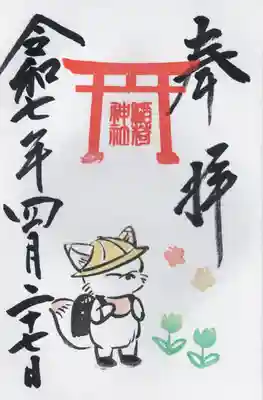 奉拝
神社
令和七年四月二十七日